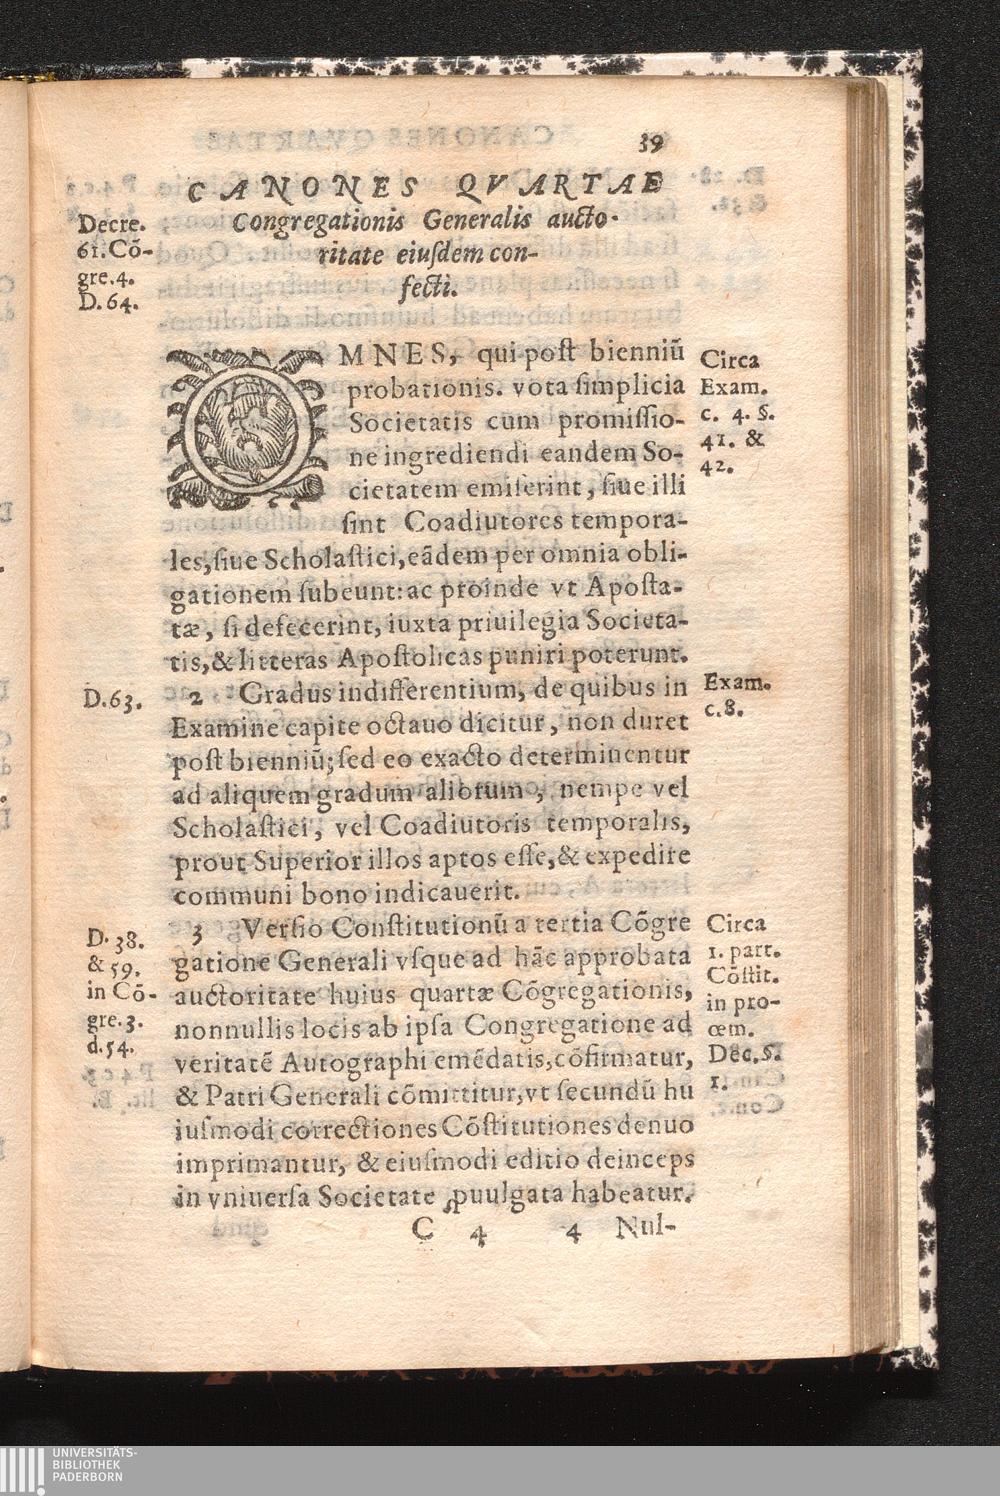 39
CANONES QVARTAE
Congregationis Generalis aucto-
ritate eiuſdem con-
fecti.
Decre.
61. Cõ-
gre. 4.
D. 64.
OMNES, qui poſt bienniũ
probationis. vota ſimplicia
Societatis cum promiſſio-
ne ingrediendi eandem So-
cietatem emiſerint, ſiue illi
ſint Coadiutores tempora-
les, ſiue Scholaſtici, eãdem per omnia obli-
gationem ſubeunt: ac proinde vt Apoſta-
tæ, ſi defecerint, iuxta priuilegia Societa-
tis, & litteras Apoſtolicas puniri poterunt.
Circa
Exam.
c. 4. §.
41. &
42.
D. 63.
2 Gradus indifferentium, de quibus in
Examine capite octauo dicitur, non duret
poſt bienniũ; ſed eo exacto determinentur
ad aliquem gradum aliorum, nempe vel
Scholaſtici, vel Coadiutoris temporalis,
prout Superior illos aptos eſſe, & expedire
communi bono indicauerit.
Exam.
c. 8.
D. 38.
& 59.
in Cõ-
gre. 3.
d. 54.
3 Verſio Conſtitutionũ a tertia Cõgre
gatione Generali vſque ad hãc approbata
auctoritate huius quartæ Cõgregationis,
nonnullis locis ab ipſa Congregatione ad
veritatẽ Autographi emẽdatis, cõfirmatur,
& Patri Generali cõmittitur, vt ſecundũ hu
iuſmodi correctiones Cõſtitutiones denuo
imprimantur, & eiuſmodi editio deinceps
in vniuerſa Societate ꝓuulgata habeatur.
Circa
1. part.
Cõſtit.
in pro-
œm.
Dec. §.
1.
C 4 4 Nul-
UNIVERSITÄTS-
BIBLIOTHEK
PADERBORN